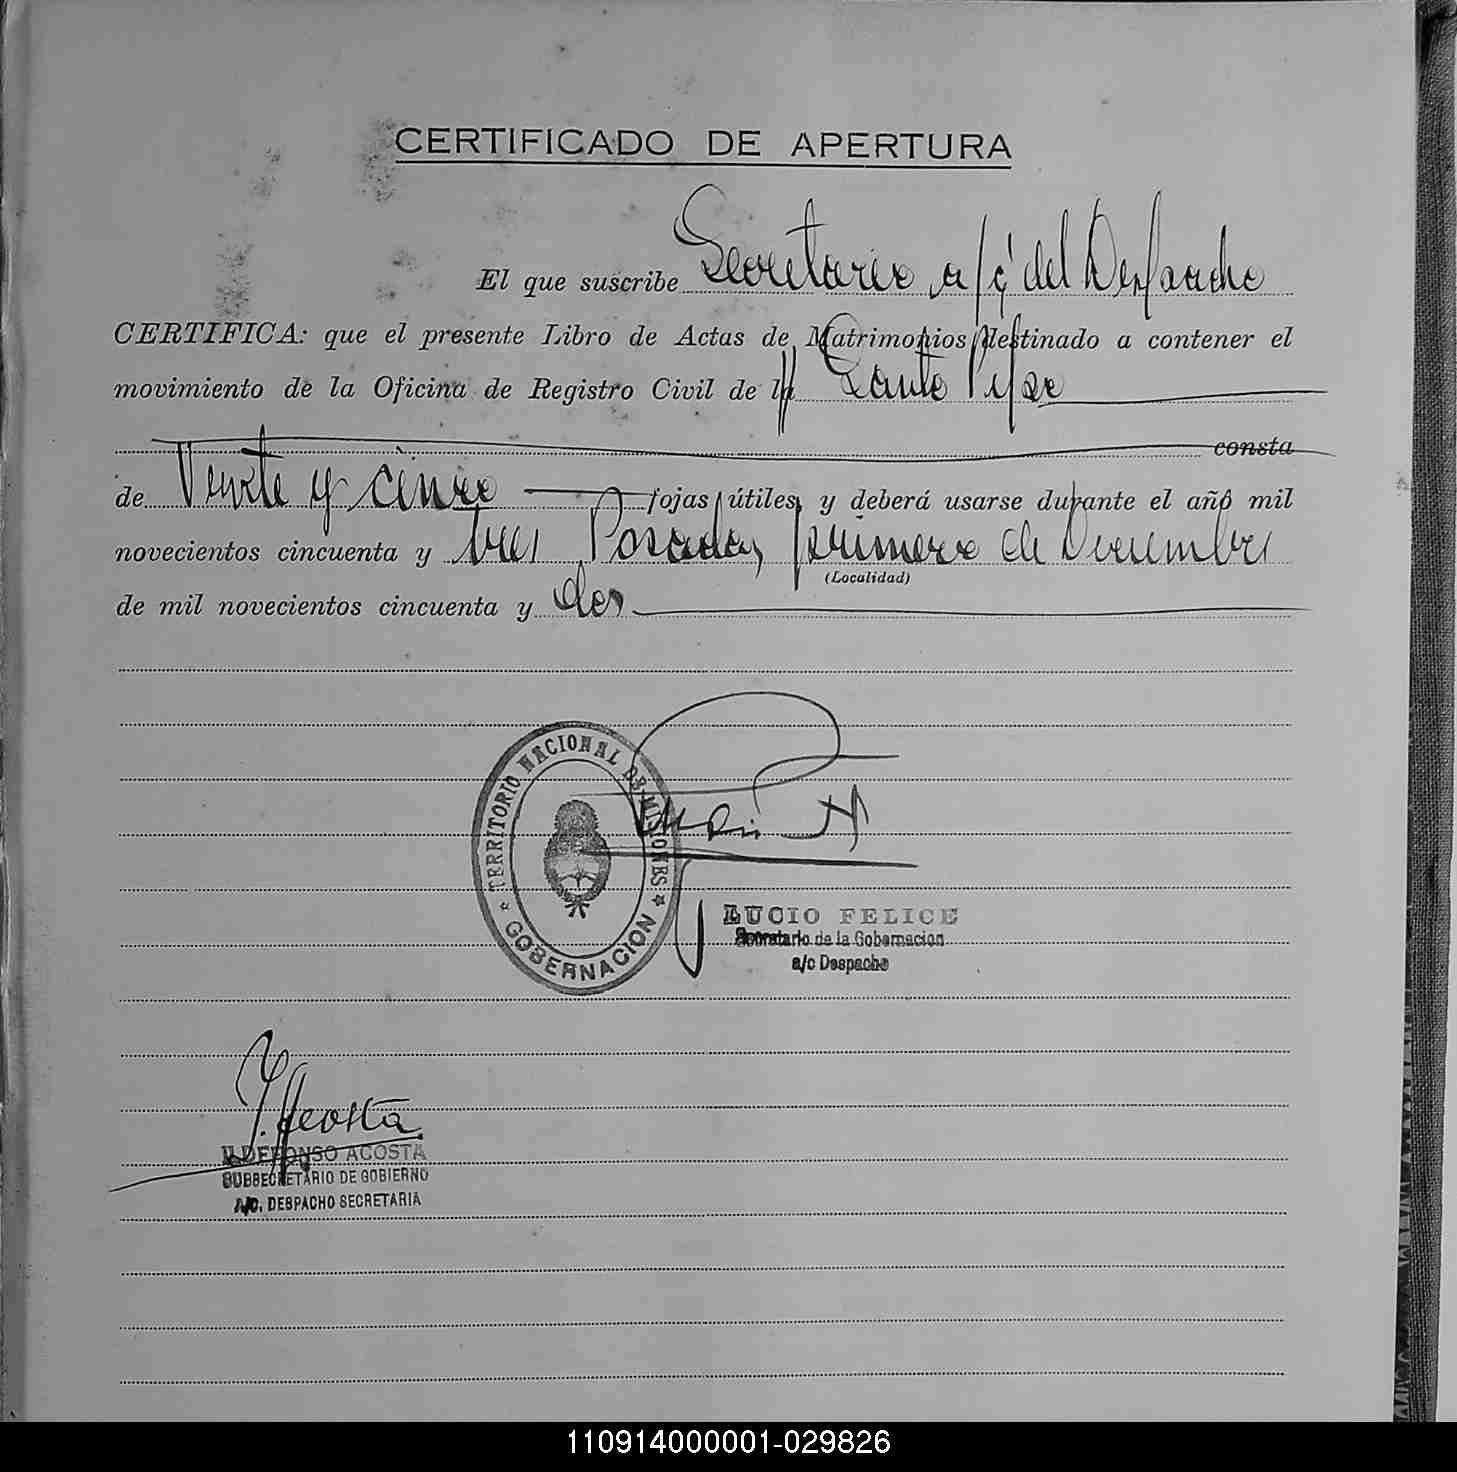 CERTIFICADO DE APERTURA
El que suscribe Secretario a/c del Despacho
CERTIFICA: que el presente Libro de Actas de Matrimonios destinado a contener el
movimiento de la Oficina de Registro Civil de la Santo Pipo
consta
de Veinte y cinco fojas útiles, y deberá usarse durante el año mil
novecientos cincuenta y tres Posadas, primero de Diciembre
(Localidad)
de mil novecientos cincuenta y dos
TERRITORIO NACIONAL DE MISIONES
GOBERNACION
LUCIO FELICE
Secretario de la Gobernacion
a/c Despacho
I. Acosta
ILDEFONSO ACOSTA
SUBSECRETARIO DE GOBIERNO
A/C. DESPACHO SECRETARIA
110914000001-029826